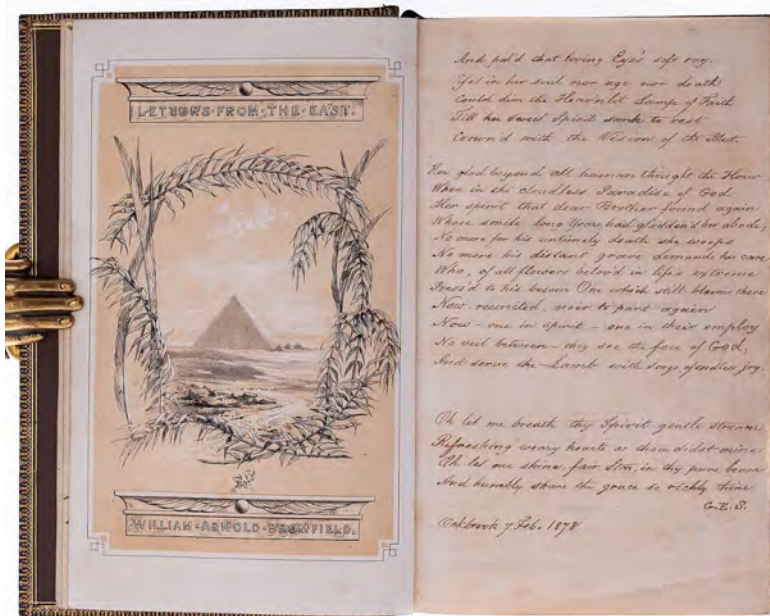 LETTERS·FROM·THE·EAST.
WILLIAM·ARNOLD·BROMFIELD.
And pal'd that loving Eye's soft ray.
Yet in her soul nor age nor death
Could dim the Heavenlit Lamp of Faith
Till her sweet Spirit sunk to rest
Crown'd with the Vision of the Blest.
How glad beyond all human thought the Hour
When in the cloudless Paradise of God
Her spirit that dear Brother found again
Whose smile long Years had gladden'd her abode,
No more for his untimely death she weeps
No more his distant grave demands her care
Who, of all flowers belov'd in life's extreme
Press'd to his bosom One which still blooms there
Now - reunited, never to part again
Now - one in spirit - one in their employ
No veil between - they see the face of God,
And serve the Lamb with songs of endless joy.
Oh let me breath thy Spirit gentle stream
Refreshing weary hearts as thou didst mine
Oh let me shine, fair Star, in thy pure beam
And humbly share the grace so richly thine
G.E.S.
Oakbrook 7 Feb. 1878